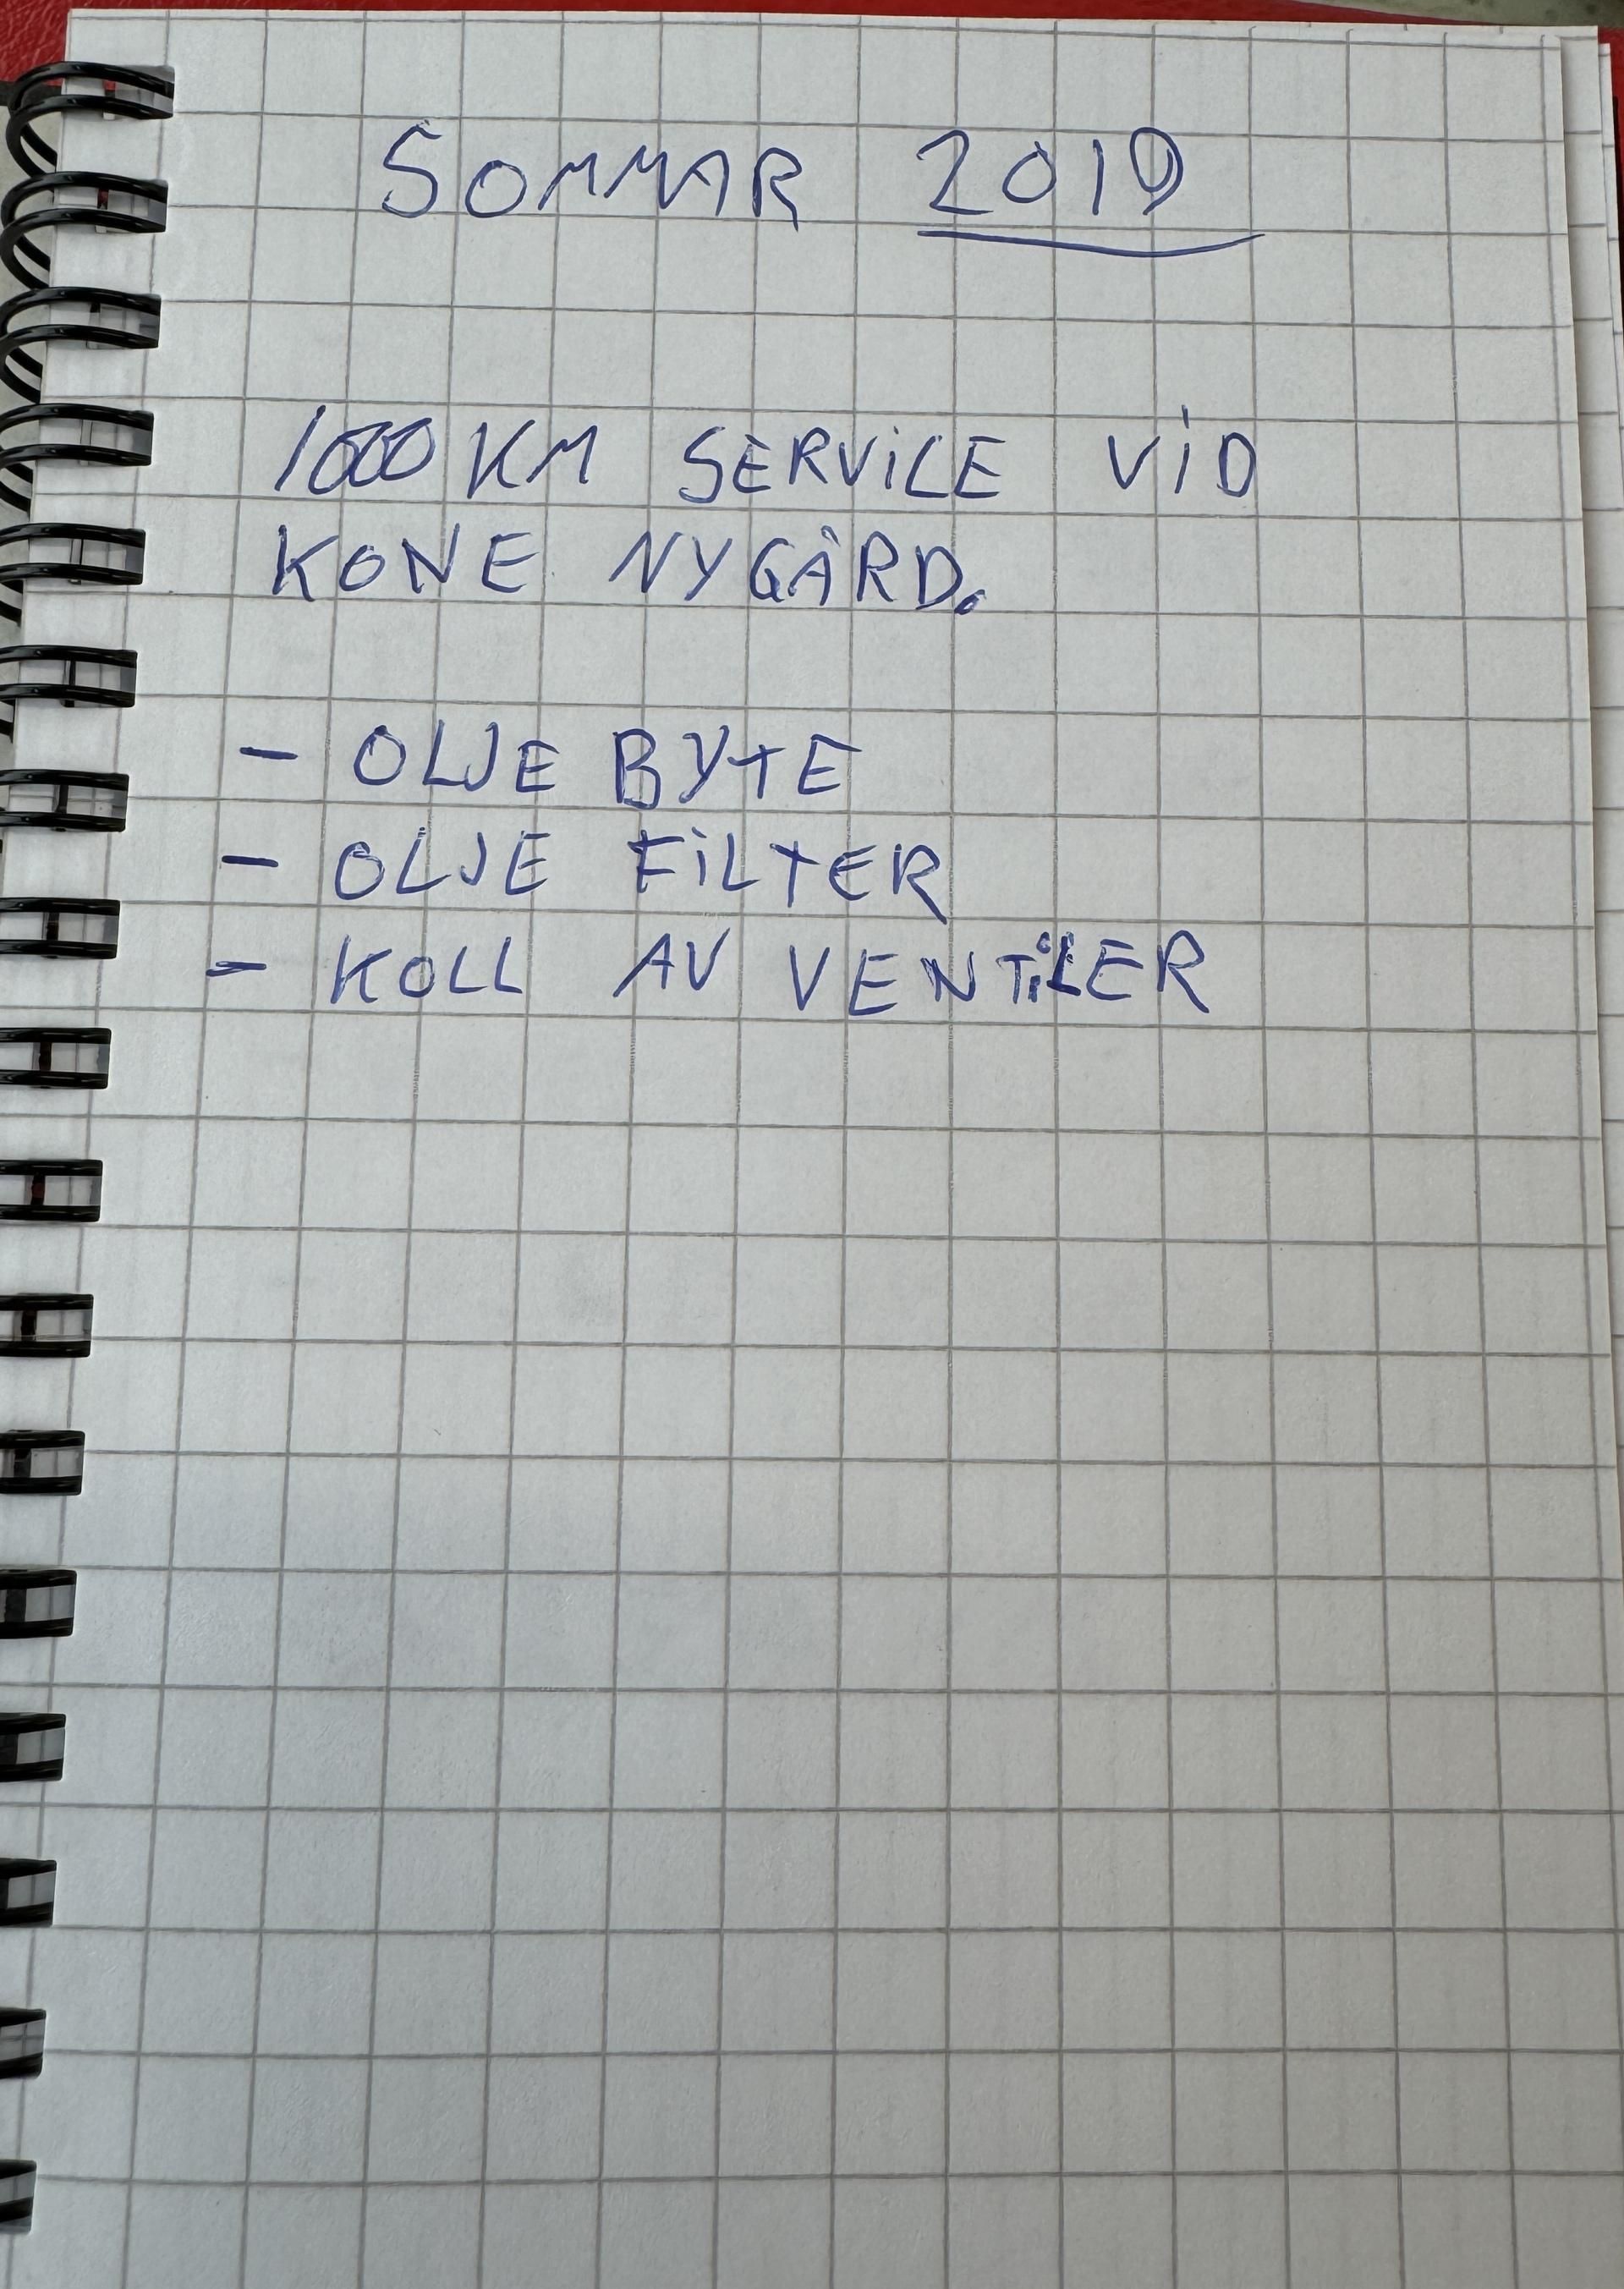 SOMMAR 2019
1000 KM SERVICE VID
KONE NYGÅRD.
- OLJE BYTE
- OLJE FILTER
- KOLL AV VENTILER